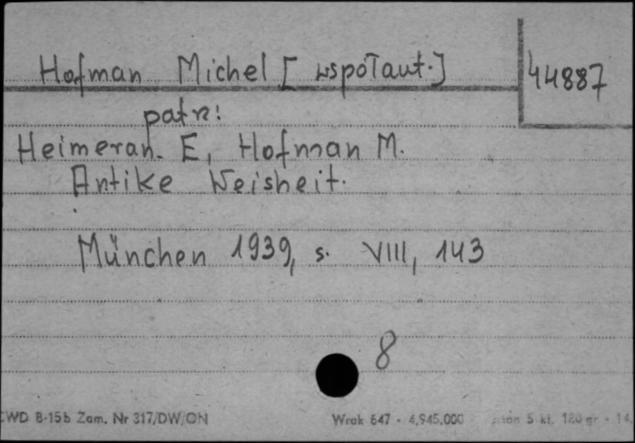 Hofman Michel [wspołaut.]
44887
patrz:
Heimeran. E, Hofman M.
Antike Weisheit.
München 1939, s. VIII, 143
8
CWD B-15b Zam. Nr 317/DW/ON Wrak 647 - 4,945,000 5 kl. 120 gr - 14